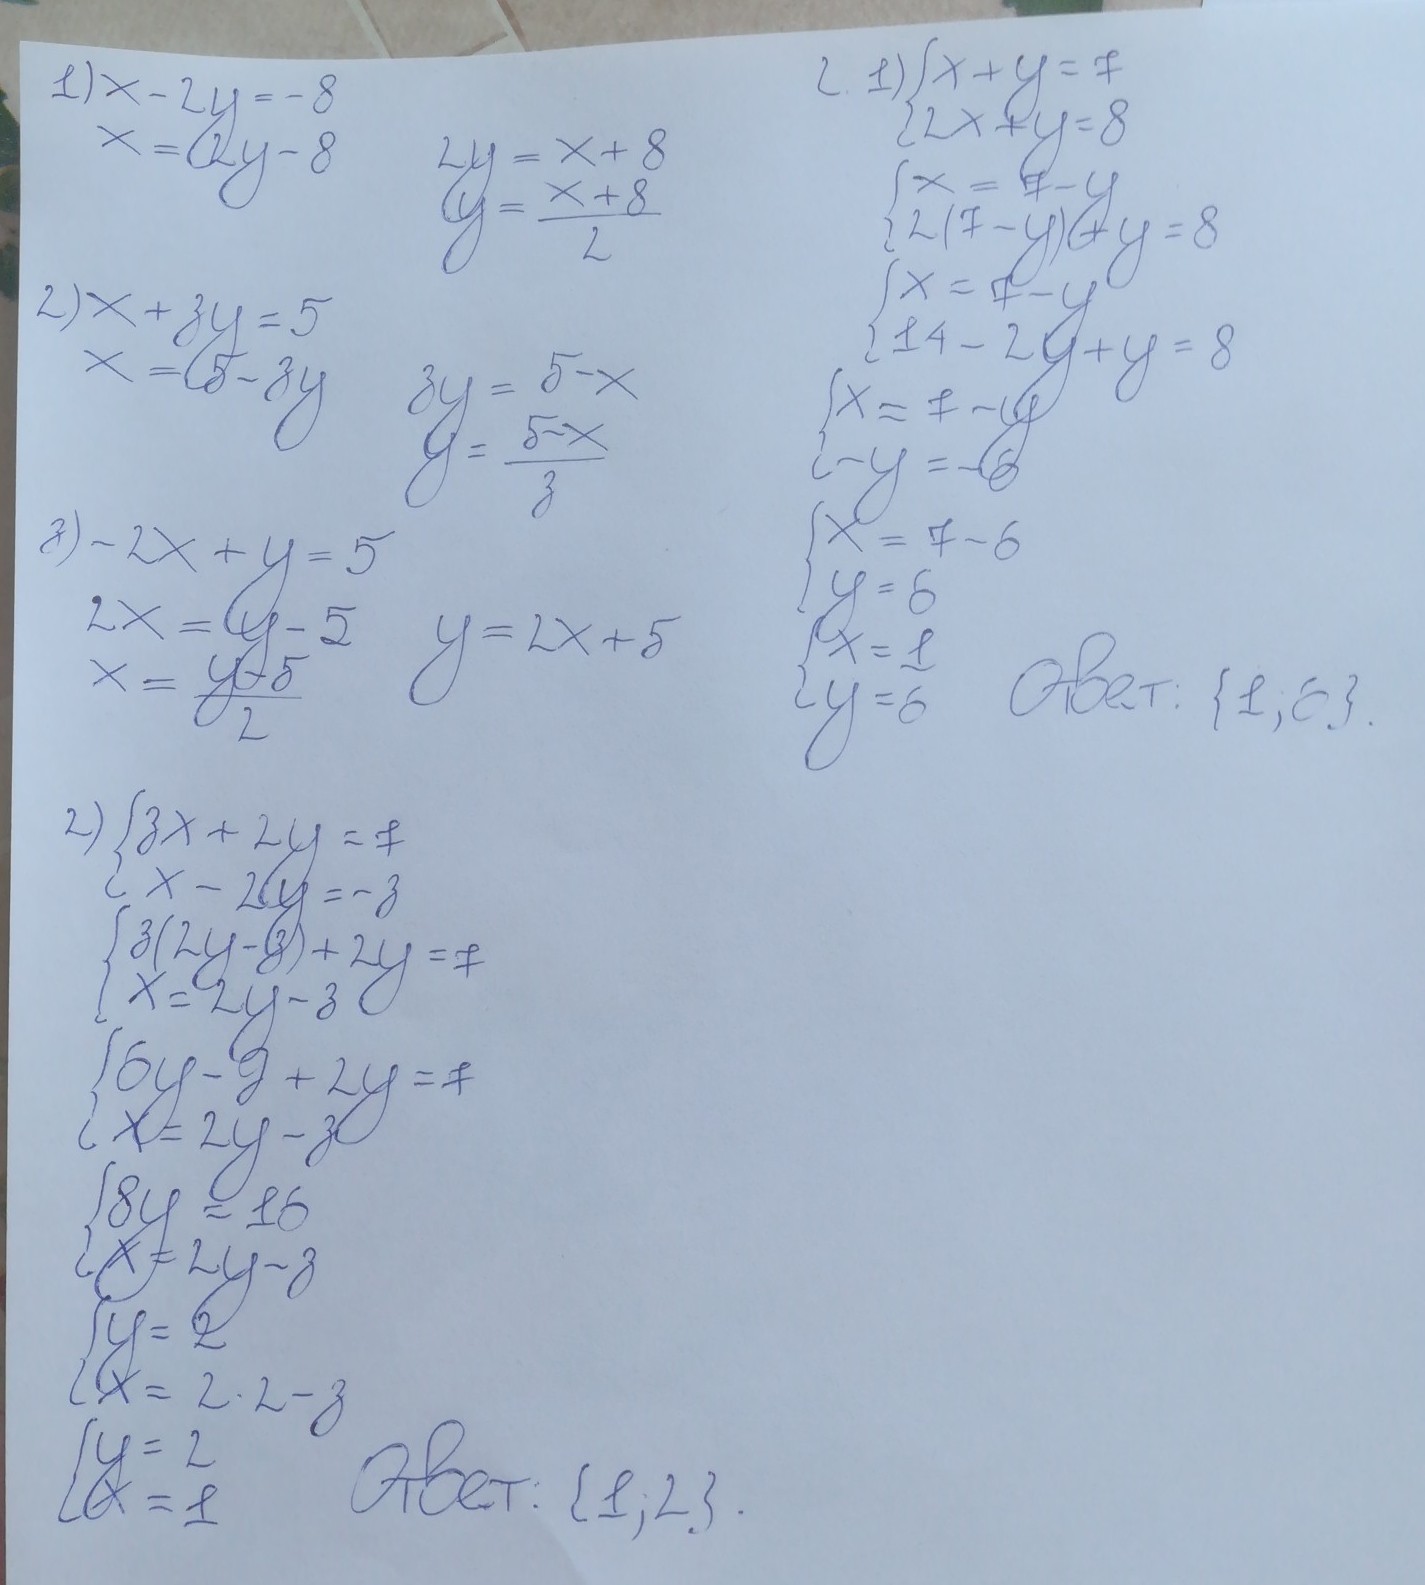 1) x - 2y = -8
x = 2y - 8
2y = x + 8
y = (x + 8)/2
2) x + 3y = 5
x = 5 - 3y
3y = 5 - x
y = (5 - x)/3
3) -2x + y = 5
2x = y - 5
x = (y - 5)/2
y = 2x + 5
2. 1) { x + y = 7
{ 2x + y = 8
{ x = 7 - y
{ 2(7 - y) + y = 8
{ x = 7 - y
{ 14 - 2y + y = 8
{ x = 7 - y
{ -y = -6
{ x = 7 - 6
{ y = 6
{ x = 1
{ y = 6
Ответ: {1; 6}.
2) { 3x + 2y = 7
{ x - 2y = -3
{ 3(2y - 3) + 2y = 7
{ x = 2y - 3
{ 6y - 9 + 2y = 7
{ x = 2y - 3
{ 8y = 16
{ x = 2y - 3
{ y = 2
{ x = 2 · 2 - 3
{ y = 2
{ x = 1
Ответ: {1; 2}.